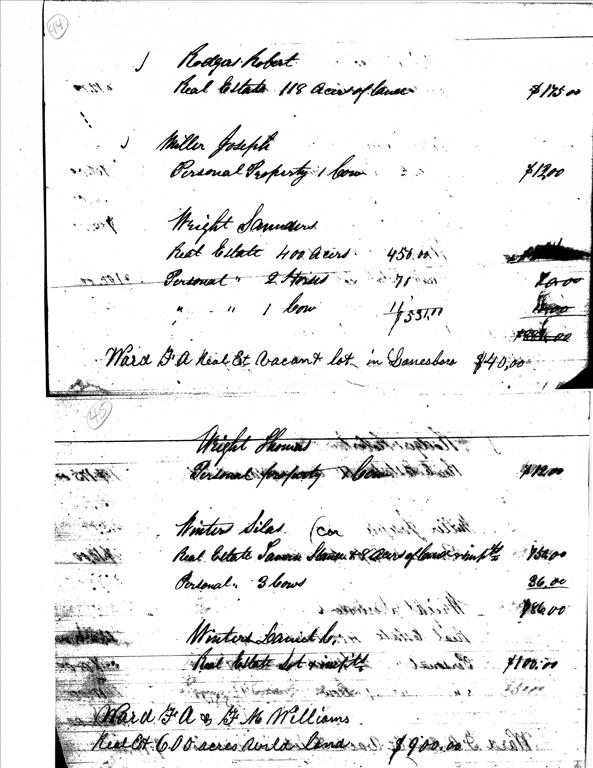 44
Rodgers Robert
Real Estate 118 Acres of land $175.00
Miller Joseph
Personal Property 1 Cow $12.00
Wright Saunders
Real Estate 400 Acres 450.00
Personal " 2 Horses 70.00
" " 1 Cow
Ward F A Real Est Vacant lot in Lanesboro $40.00
45
Wright Thomas
Personal property 1 Cow $12.00
Winters Silas
Real Estate Tavern Stand & 8 Acres of land & impts 750.00
Personal " 3 Cows 36.00
786.00
Winters
Real Estate Lot & impts $100.00
Ward F A & F M Williams
Real Est 600 acres wild land $900.00